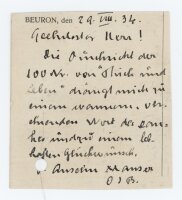 BEURON, den 29. VIII. 34.
Geehrtester Herr!
Die Durchsicht der
100 Nr. von "Buch und
Leben" drängt mich zu
einem warmen, ver-
ehrenden Wort des Dan-
kes und zu einem leb-
haften Glückwunsch.
Anselm Manser
OSB.